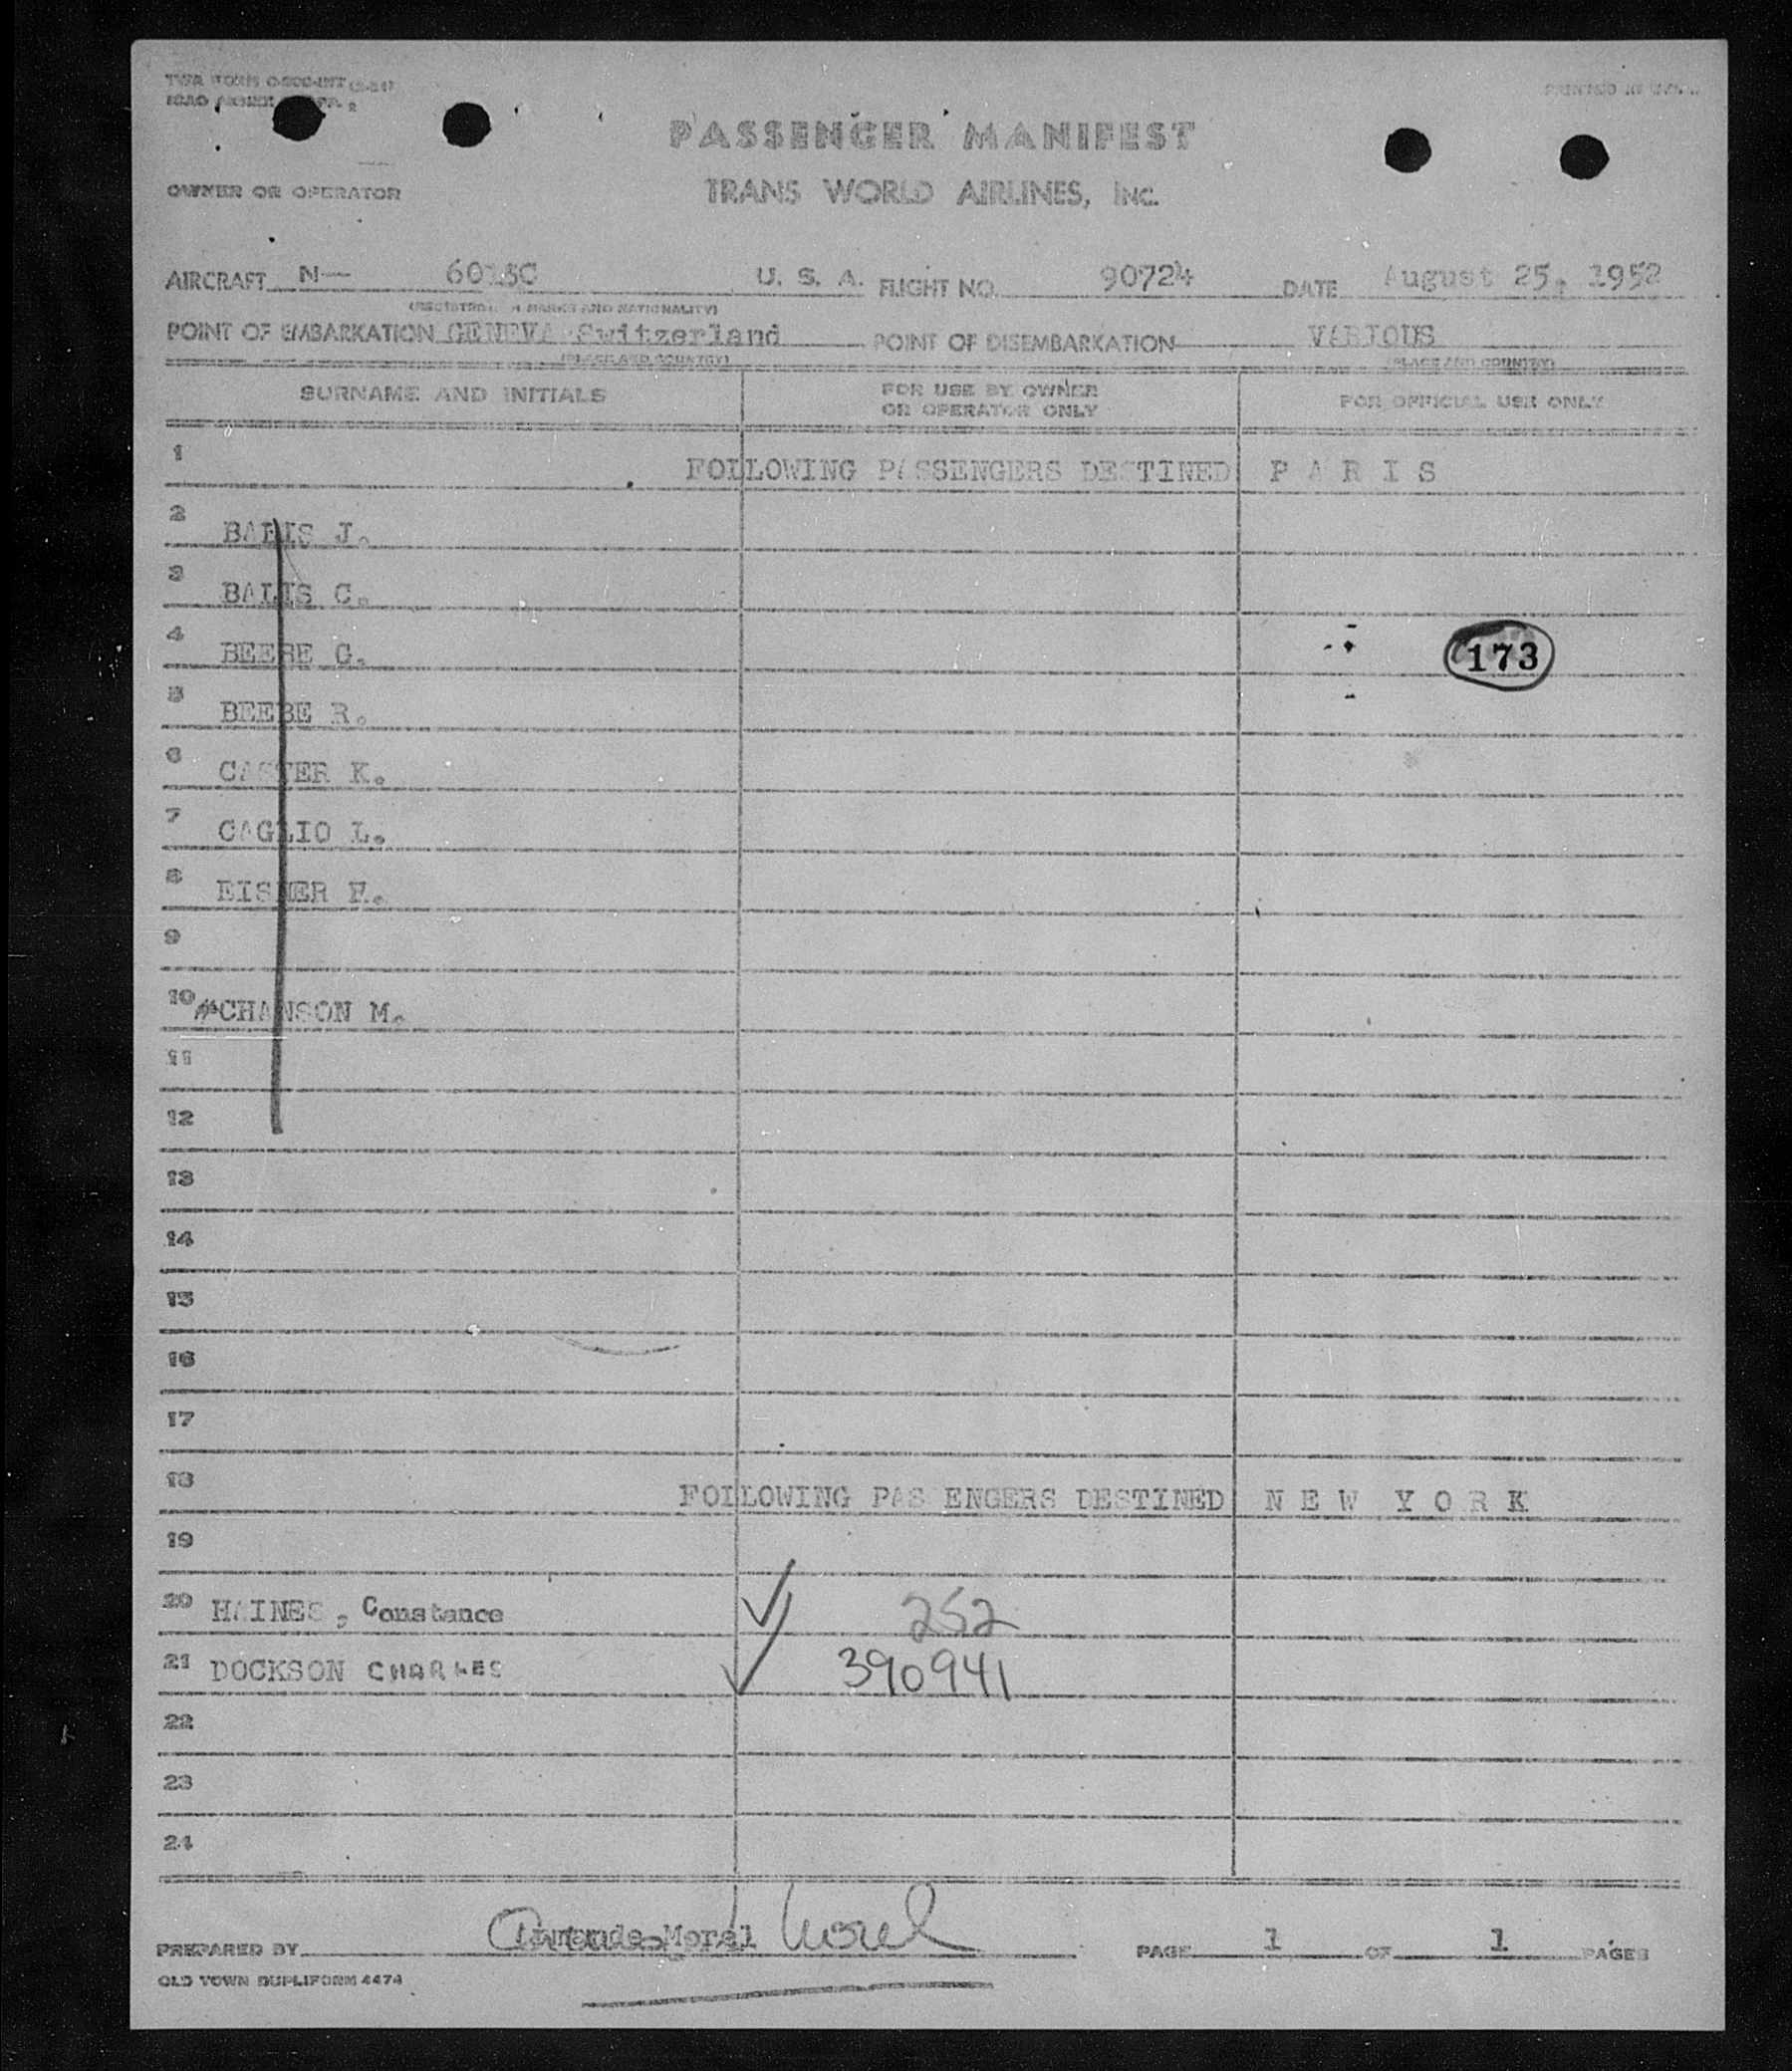 PRINTED IN U.S.A.
PASSENGER MANIFEST
OWNER OR OPERATOR
TRANS WORLD AIRLINES, INC.
AIRCRAFT N— U. S. A. FLIGHT NO. 90724 DATE August 25, 1952
(REGISTRATION MARKS AND NATIONALITY)
POINT OF EMBARKATION GENEVA Switzerland POINT OF DISEMBARKATION VARIOUS
(PLACE AND COUNTRY) (PLACE AND COUNTRY)
SURNAME AND INITIALS FOR USE BY OWNER OR OPERATOR ONLY FOR OFFICIAL USE ONLY
1 FOLLOWING PASSENGERS DESTINED P A R I S
2 BALIS J.
3 BALIS C.
4 BEEBE G. 173
5 BEEBE R.
6 CASTER K.
7 CAGLIO L.
8 EISNER
9
10 CHANSON M.
11
12
13
14
15
16
17
18 FOLLOWING PAS ENGERS DESTINED N E W Y O R K
19
20 HAINES, Constance 252
21 DOCKSON CHARLES 390941
22
23
24
PREPARED BY Morel PAGE 1 OF 1 PAGES
OLD TOWN DUPLIFORM 4474